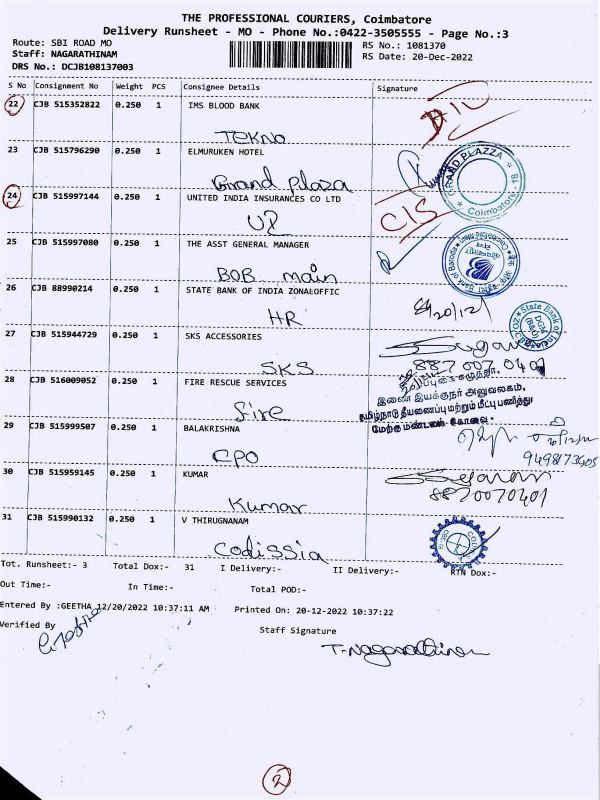 THE PROFESSIONAL COURIERS, Coimbatore
Delivery Runsheet - MO - Phone No.:0422-3505555 - Page No.:3
Route: SBI ROAD MO
RS No.: 1081370
Staff: NAGARATHINAM
RS Date: 20-Dec-2022
DRS No.: DCJB108137003
S No Consignment No Weight PCS Consignee Details Signature
22 CJB 515352822 0.250 1 IMS BLOOD BANK
Tekno
23 CJB 515796290 0.250 1 ELMURUKEN HOTEL
Grand plaza
GRAND PLAZZA
Coimbatore - 18
24 CJB 515997144 0.250 1 UNITED INDIA INSURANCES CO LTD
CIS
25 CJB 515997080 0.250 1 THE ASST GENERAL MANAGER
BOB main
Bank of Baroda
26 CJB 88990214 0.250 1 STATE BANK OF INDIA ZONALOFFIC
HR
20/12/
State Bank of India
DGM
(B&O)
27 CJB 515944729 0.250 1 SKS ACCESSORIES
SKS
8870070401
28 CJB 516009052 0.250 1 FIRE RESCUE SERVICES
Fire
இணை இயக்குநர் அலுவலகம்,
தமிழ்நாடு தீயணைப்பு மற்றும் மீட்பு பணித்து
மேற்கு மண்டலம் கோவை.
29 CJB 515999507 0.250 1 BALAKRISHNA
CPO
9498173405
30 CJB 515959145 0.250 1 KUMAR
Kumar
8870070401
31 CJB 515990132 0.250 1 V THIRUGNANAM
Codissia
Tot. Runsheet:- 3 Total Dox:- 31 I Delivery:- II Delivery:- RTN Dox:-
Out Time:- In Time:- Total POD:-
Entered By :GEETHA 12/20/2022 10:37:11 AM Printed On: 20-12-2022 10:37:22
Verified By
Staff Signature
T. Nagarathinam
2